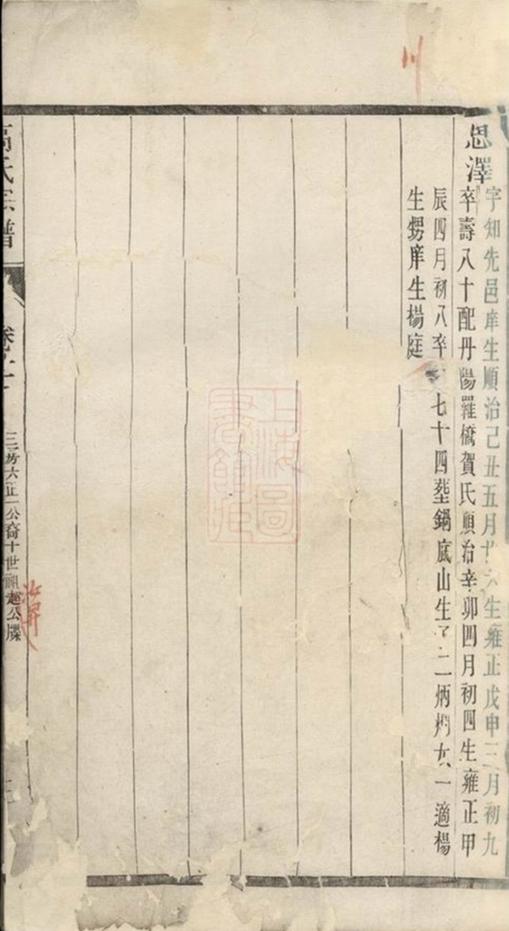 川
思澤
字知先邑庠生順治己丑五月廿六生雍正戊申三月初九
卒壽八十配丹陽羅橋賀氏順治辛卯四月初四生雍正甲
辰四月初八卒七十四葬鍋底山生子二炳炯女一適楊
生甥庠生楊庭
上海圖書館藏
高氏宗譜
三芳六正一公裔十世公牒